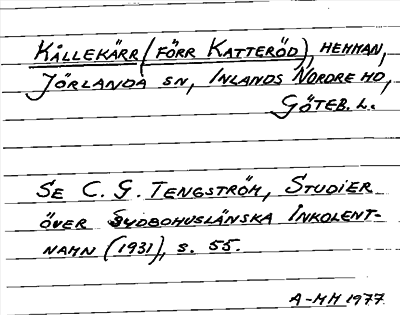 KÅLLEKÄRR (FÖRR KATTERÖD), HEMMAN,
JÖRLANDA SN, INLANDS NORDRE HD,
GÖTEB. L.
SE C. G. TENGSTRÖM, STUDIER
ÖVER SYDBOHUSLÄNSKA INKOLENT-
NAMN (1931), S. 55.
A-MM 1977